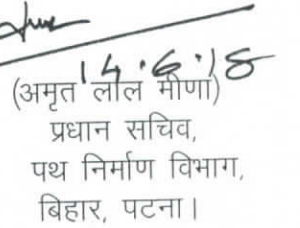 14.6.18
(अमृत लाल मीणा)
प्रधान सचिव,
पथ निर्माण विभाग,
बिहार, पटना।